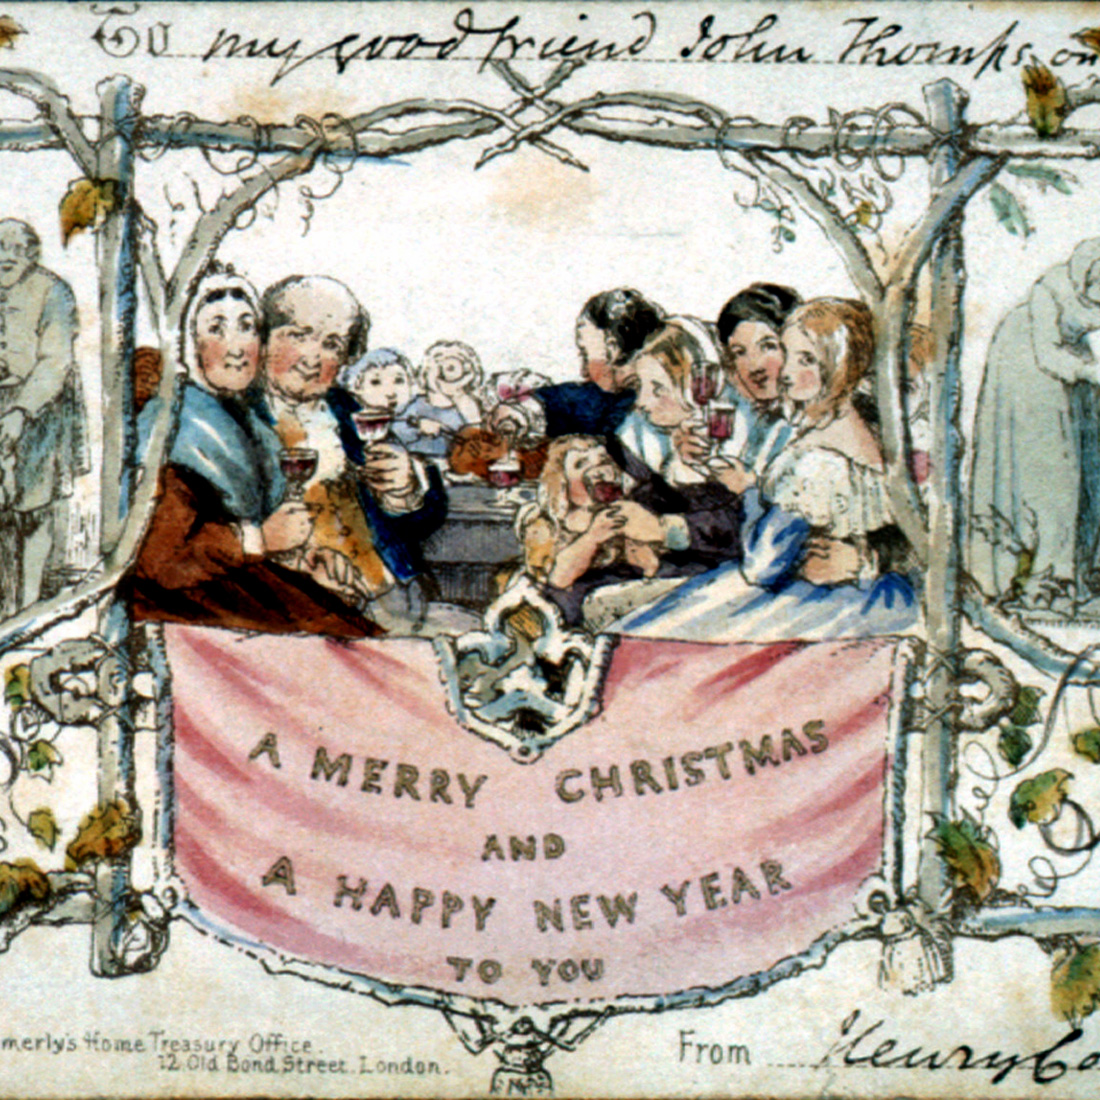 To my good friend John Thompson
A MERRY CHRISTMAS
AND
A HAPPY NEW YEAR
TO YOU
merly's Home Treasury Office.
12 Old Bond Street. London.
From Henry Co